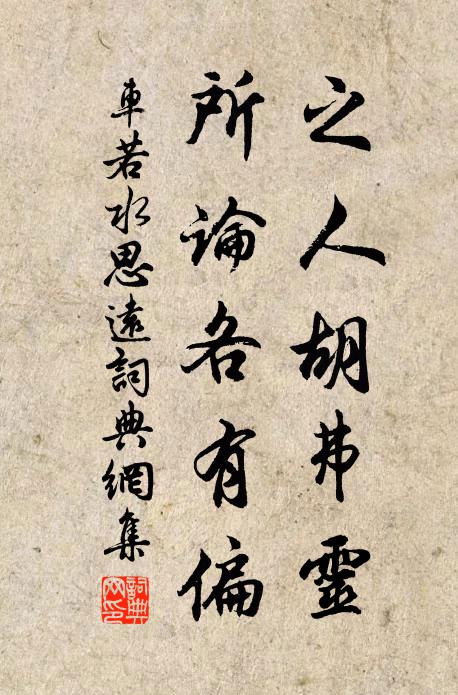 之人胡弗靈
所論各有偏
車若水思遠詞典網集
詞典
网印